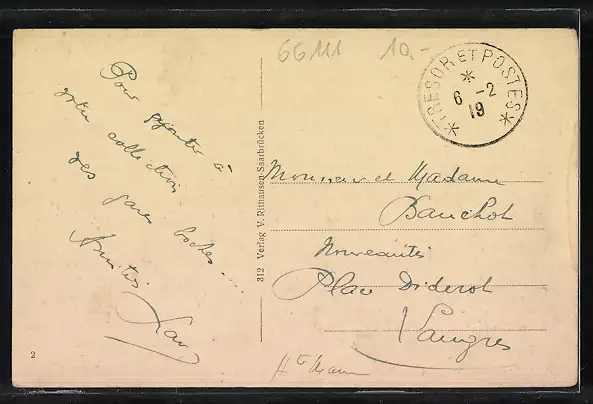 66111 10.-
TRESOR ET POSTES
6 -2
19
Pour ajouter à
votre collection
des gares boches....
Amitiés
312 Verlag V. Rithausen Saarbrücken
Monsieur et Madame
Bauchot
Nouveautés
Place Diderot
Langres
Hte Marne
2